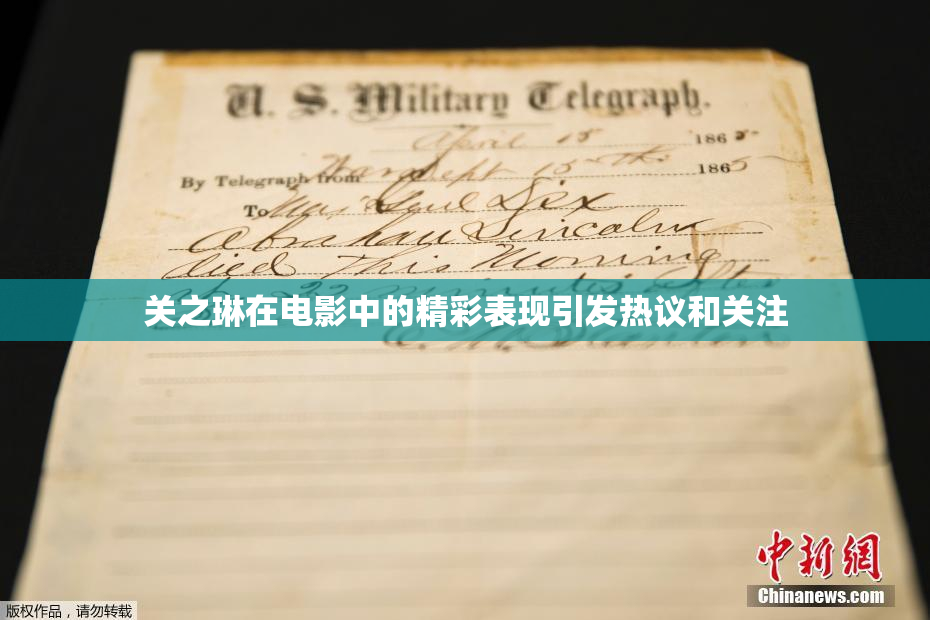 U. S. Military Telegraph.
April 15 1865
By Telegraph from War Dept 15th 1865
To Maj Genl Dix
Abraham Lincoln
died This Morning
at 22 minutes after
关之琳在电影中的精彩表现引发热议和关注
E. M. Stanton
中新網
Chinanews.com
版权作品，请勿转载